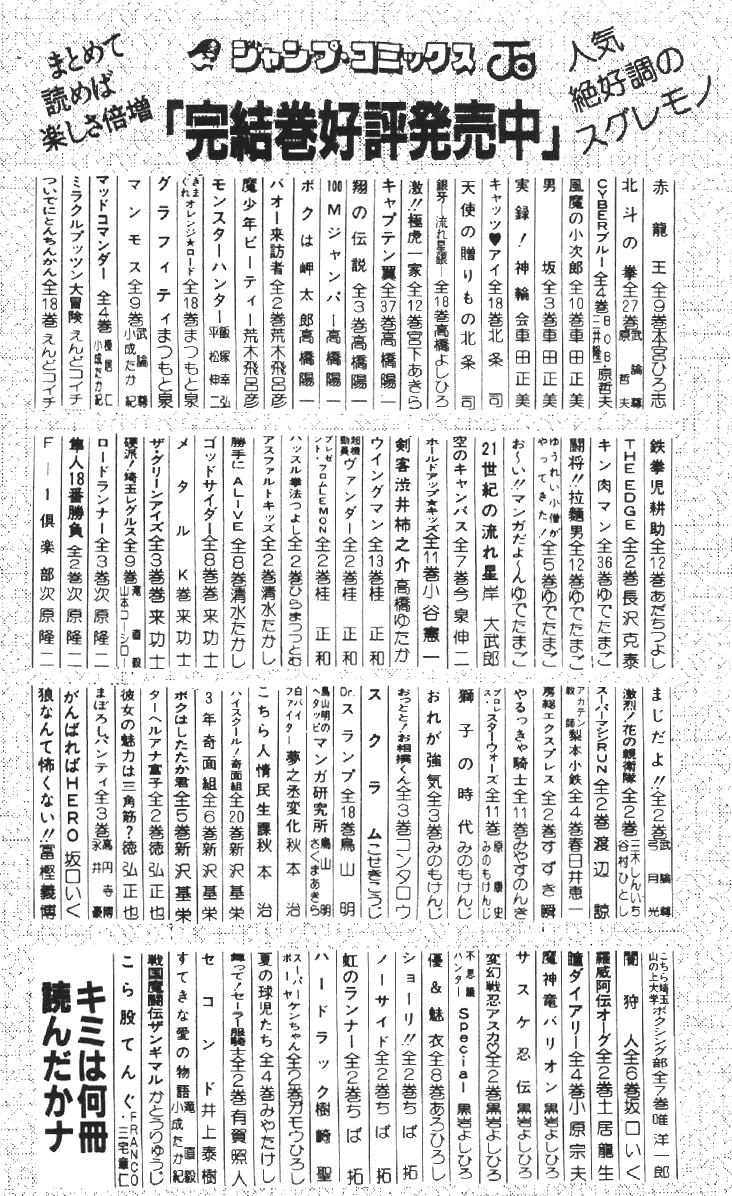 まとめて
読めば
楽しさ倍増
ジャンプ・コミックス
人気
絶好調の
スグレモノ
「完結巻好評発売中」
赤龍王 全9巻 本宮ひろ志
北斗の拳 全27巻 武論尊 原哲夫
CYBERブルー 全4巻 BOB 三井隆一 原哲夫
風魔の小次郎 全10巻 車田正美
男坂 全3巻 車田正美
実録！神輪会 車田正美
キャッツ♥アイ 全18巻 北条司
天使の贈りもの 北条司
銀牙 流れ星銀 全18巻 高橋よしひろ
激!!極虎一家 全12巻 宮下あきら
キャプテン翼 全37巻 高橋陽一
翔の伝説 全3巻 高橋陽一
100Mジャンパー 高橋陽一
ボクは岬太郎 高橋陽一
バオー来訪者 全2巻 荒木飛呂彦
魔少年ビーティー 荒木飛呂彦
モンスターハンター 飯塚幸弘 平松伸二
きまぐれオレンジ★ロード 全18巻 まつもと泉
グラフィティ まつもと泉
マンモス 全9巻 武論尊 小成たか紀
マッドコマンダー 全4巻 小成たか紀
ミラクルプッツン大冒険 えんどコイチ
ついでにとんちんかん 全18巻 えんどコイチ
鉄拳児耕助 全12巻 あだちつよし
THE EDGE 全2巻 長沢克泰
キン肉マン 全36巻 ゆでたまご
闘将!!拉麵男 全12巻 ゆでたまご
ゆうれい小僧がやってきた！ 全5巻 ゆでたまご
お〜い!!マンガだよ〜ん ゆでたまご
21世紀の流れ星 岸大武郎
空のキャンバス 全7巻 今泉伸二
ホールドアップ★キッズ 全11巻 小谷憲一
剣客渋井柿之介 高橋ゆたか
ウイングマン 全13巻 桂正和
超機動員ヴァンダー 全2巻 桂正和
プレゼント・フロムLEMON 全2巻 桂正和
ハッスル拳法つよし 全2巻 ひらまつつとむ
アスファルトキッズ 全2巻 清水たかし
勝手にALIVE 全8巻 清水たかし
ゴッドサイダー 全8巻 巻来功士
メタルK 巻来功士
ザ・グリーンアイズ 全3巻 巻来功士
硬派！埼玉レグルス 全9巻 滝直毅 山本コーシロー
ロードランナー 全3巻 次原隆二
隼人18番勝負 全2巻 次原隆二
F－1倶楽部 次原隆二
まじだよ!! 全2巻 武論尊 弓月光
激烈！花の親衛隊 全2巻 三木しんいち 谷村ひとし
スーパーマシンRUN 全2巻 渡辺諒
アカテン教師梨本小鉄 全4巻 春日井恵一
房総エクスプレス 全2巻 すずき瞬
やるっきゃ騎士 全11巻 みやすのんき
プロレス・スターウォーズ 全11巻 原康史 みのもけんじ
獅子の時代 みのもけんじ
おれが強気 全3巻 みのもけんじ
おっとと！お相撲くん 全3巻 コンタロウ
スクラム こせきこうじ
Dr.スランプ 全18巻 鳥山明
鳥山明のヘタッピマンガ研究所 鳥山明 さくまあきら
白バイファイター夢之丞変化 秋本治
こちら人情民生課 秋本治
ハイスクール！奇面組 全20巻 新沢基栄
3年奇面組 全6巻 新沢基栄
ボクはしたたか君 全5巻 新沢基栄
ターヘルアナ富子 全2巻 徳弘正也
彼女の魅力は三角筋？ 徳弘正也
まぼろしパンティ 全3巻 高円寺博 永井豪
がんばればHERO 坂口いく
狼なんて怖くない!! 冨樫義博
こちら埼玉山の上大学ボクシング部 全7巻 唯洋一郎
闇狩人 全6巻 坂口いく
羅威阿伝オーグ 全2巻 土居龍生
瞳ダイアリー 全4巻 小原宗夫
魔神竜バリオン 黒岩よしひろ
サスケ忍伝 黒岩よしひろ
変幻戦忍アスカ 全2巻 黒岩よしひろ
不思議ハンターSpecial 黒岩よしひろ
優＆魅衣 全8巻 あろひろし
ショーリ!! 全2巻 ちば拓
ノーサイド 全2巻 ちば拓
虹のランナー 全2巻 ちば拓
ハードラック 樹崎聖
スーパーボーヤケンちゃん 全2巻 ガモウひろし
夏の球児たち 全4巻 みやたけし
舞って！セーラー服騎士 全2巻 有賀照人
セコンド 井上泰樹
すてきな愛の物語 滝直毅 小成たか紀
戦国魔闘伝ザンギマル かとうりゅうじ
こら股てんぐ・ FRANCO 三宅章仁
キミは何冊
読んだかナ